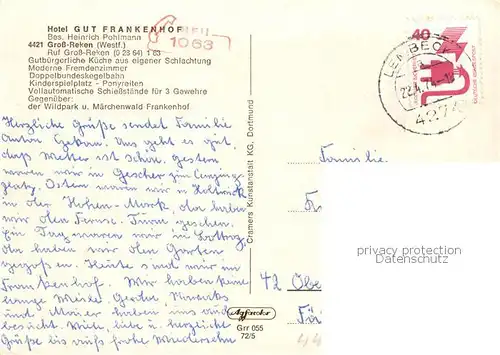 Hotel GUT FRANKENHOF
Bes. Heinrich Pohlmann
4421 Groß-Reken (Westf.)
Ruf Groß-Reken (0 23 64) 1 63
Gutbürgerliche Küche aus eigener Schlachtung
Moderne Fremdenzimmer
Doppelbundeskegelbahn
Kinderspielplatz - Ponyreiten
Vollautomatische Schießstände für 3 Gewehre
Gegenüber:
der Wildpark u. Märchenwald Frankenhof
NEU
1063
40
LEMBECK
427
Herzliche Grüße sendet Familie
Anton. Uns geht es gut,
das Wetter ist schön. gestern
waren wir in Gescher
Ostern waren wir in
in der Hohen-Mark, da haben
wir den Turm gesehen.
Ein Tag waren wir in Bottrop,
da haben wir den Garten
Heute sind wir im
Frankenhof. Wir haben keine
lange Weile,
und haben uns
besucht. Viele, liebe u. herzliche
Grüße bis aufs frohe Wiedersehn
Cramers Kunstanstalt KG, Dortmund
Grr 055
72/5
Familie
42 Obe
privacy protection
Datenschutz